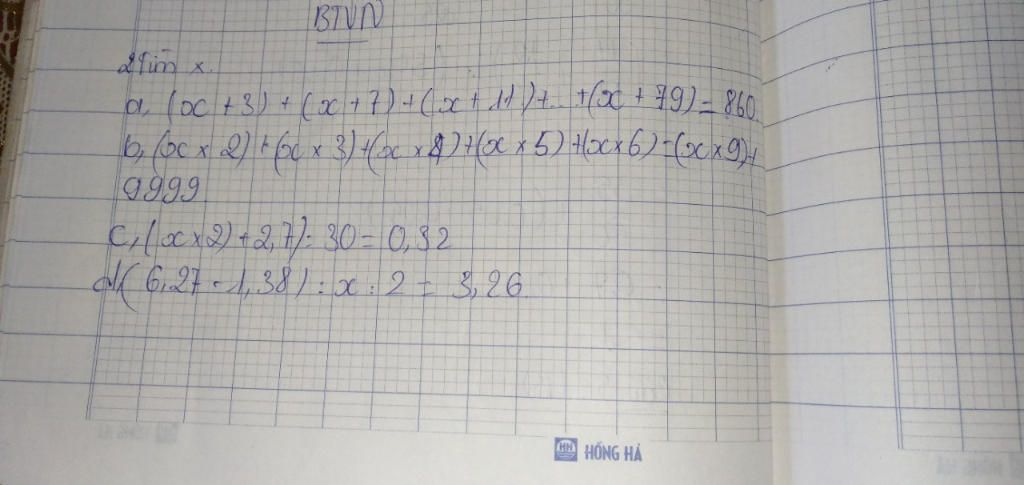 BTVN
2 Tìm x.
a, (x + 3) + (x + 7) + (x + 11) + ... + (x + 79) = 860.
b, (x × 2) + (x × 3) + (x × 4) + (x × 5) + (x × 6) = (x × 9) +
9999
c, (x × 2) + 2,7) : 30 = 0,32
d, ( 6,27 - 1,38) : x : 2 = 3,26
HỒNG HÀ